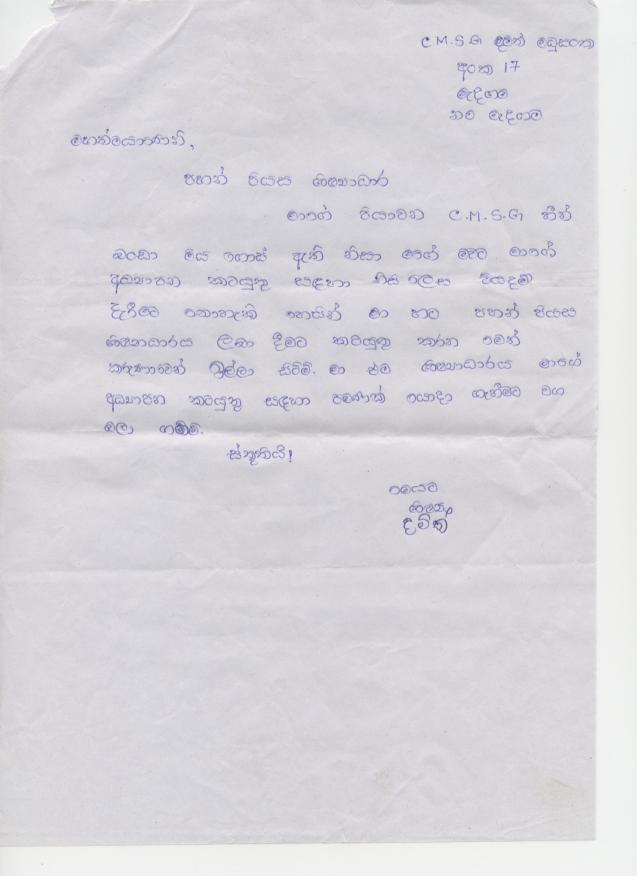 C.M.S.G දමිත් මධුසංක
අංක 17
මැදිගම
නව මැදගම
මහත්මයාණෙනි,
පහන් පියස ශිෂ්‍යාධාර
මාගේ පියාවන C.M.S.G හීන්
බංඩා මිය ගොස් ඇති නිසා මගේ මෑට මාගේ
අධ්‍යාපන කටයුතු සඳහා නිසි ලෙස වියදම්
දැරීමට නොහැකි හෙයින් මා හට පහන් පියස
ශිෂ්‍යාධාරය ලබා දීමට කටයුතු කරන මෙන්
කරුණාවෙන් ඉල්ලා සිටිමි. මා එම ශිෂ්‍යාධාරය මාගේ
අධ්‍යාපන කටයුතු සඳහා පමණක් යොදා ගැනීමට වග
බලා ගනිමි.
ස්තූතියි!
මෙයට
ශිෂ්‍ය
දමිත්